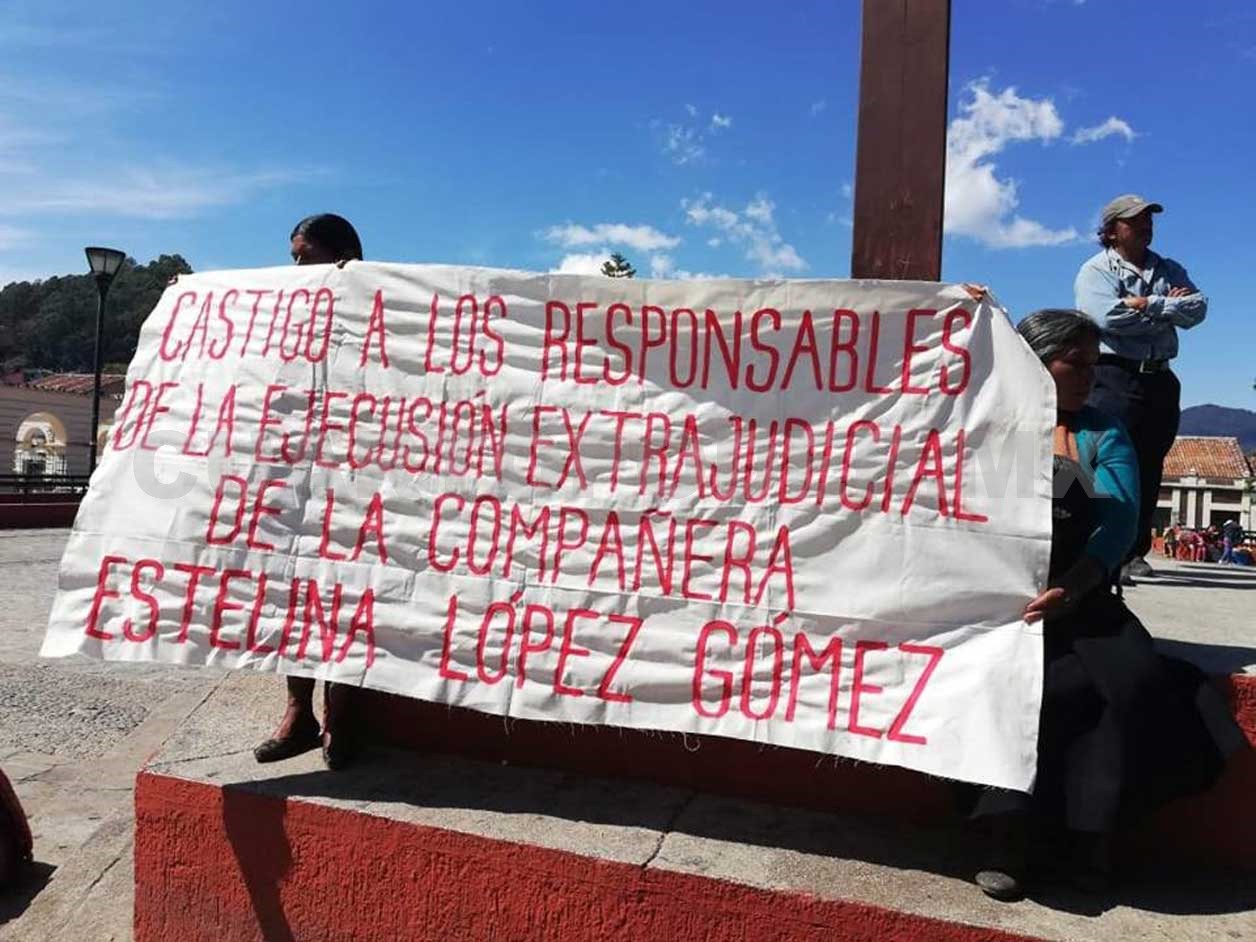 CASTIGO A LOS RESPONSABLES
DE LA EJECUSIÓN EXTRAJUDICIAL
DE LA COMPAÑERA
ESTELINA LÓPEZ GÓMEZ